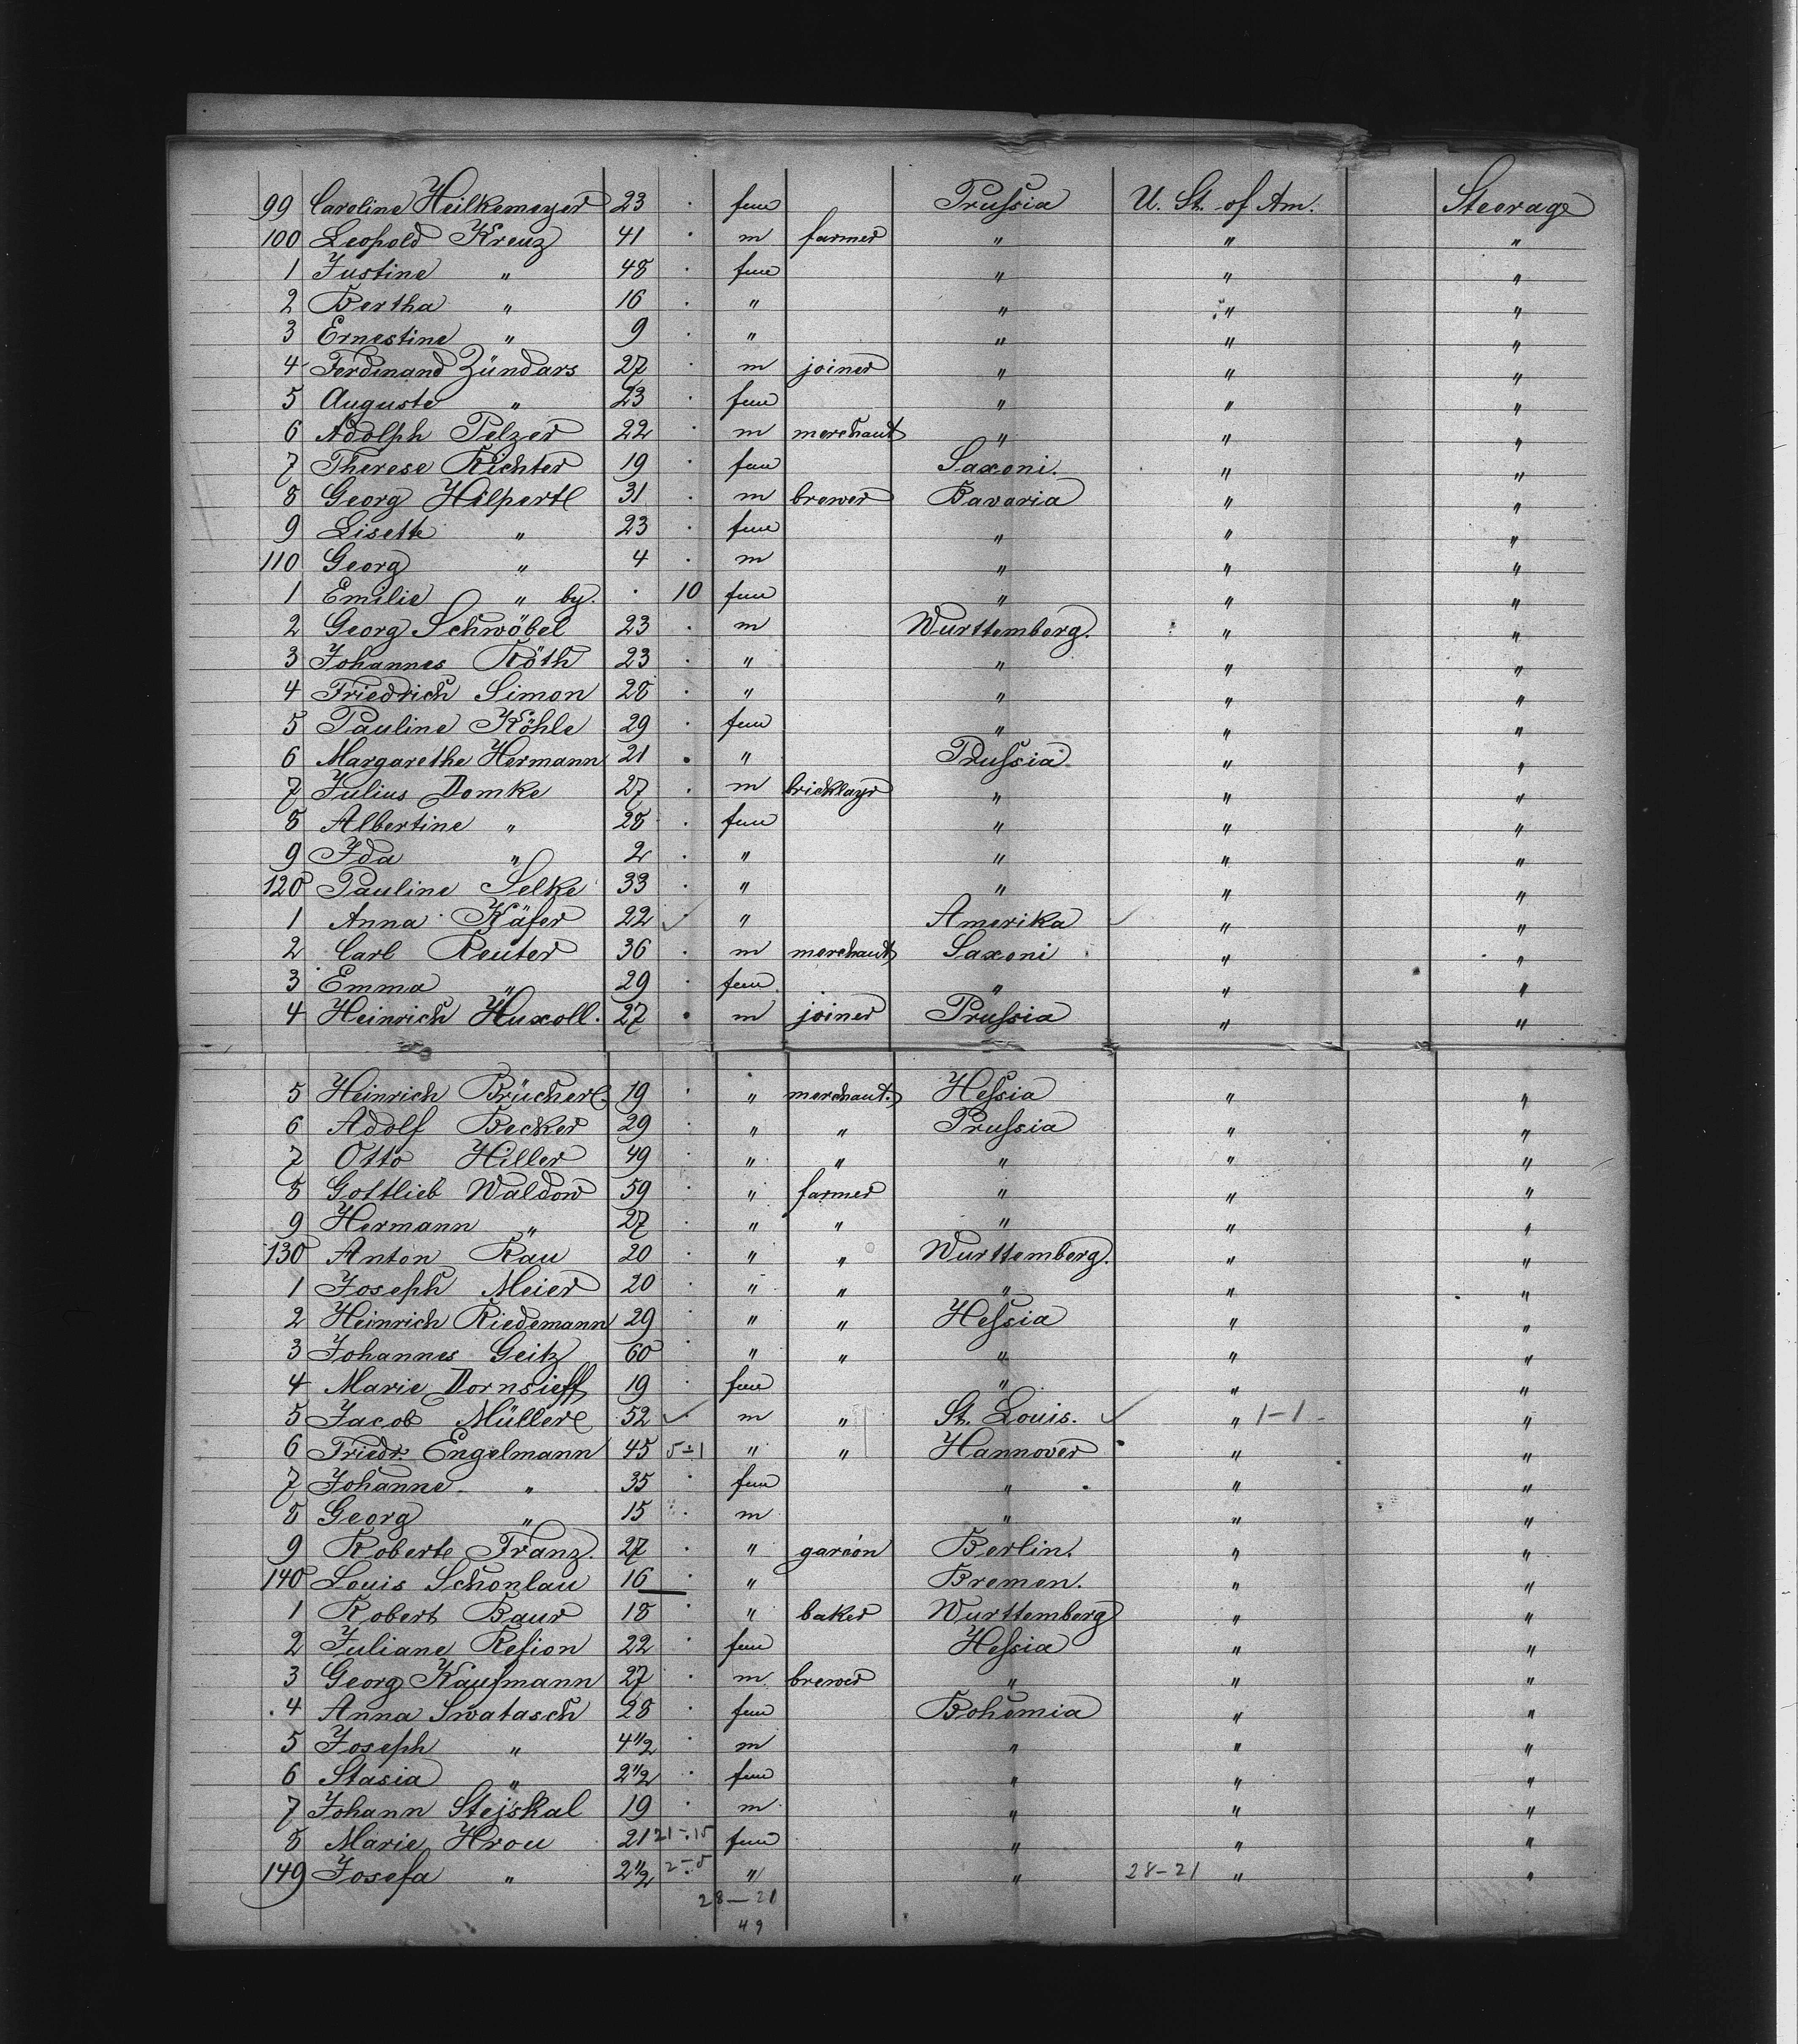 99 Caroline Heilkemeyer 23 · fem Prussia U. St. of Am. Steerage
100 Leopold Kreuz 41 · m farmer " " "
1 Justine " 48 · fem " " "
2 Bertha " 16 · " " " "
3 Ernestine " 9 · " " " "
4 Ferdinand Zündars 27 · m joiner " " "
5 Auguste " 23 · fem " " "
6 Adolph Pelzer 22 · m merchant " " "
7 Therese Richter 19 · fem Saxoni. " "
8 Georg Hilpert 31 · m brewer Bavaria " "
9 Lisette " 23 · fem " " "
110 Georg " 4 · m " " "
1 Emilie " by. · 10 fem " " "
2 Georg Schwöbel 23 · m Wurttemberg. " "
3 Johannes Röth 23 · " " " "
4 Friedrich Simon 28 · " " " "
5 Pauline Köhle 29 · fem " " "
6 Margarethe Hermann 21 · " Prussia " "
7 Julius Domke 27 · m bricklayr " " "
8 Albertine " 28 · fem " " "
9 Ida " 2 · " " " "
120 Pauline Selke 33 · " " " "
1 Anna Käfer 22 ✓ " Amerika ✓ " "
2 Carl Reuter 36 · m merchant Saxoni " "
3 Emma " 29 · fem " " "
4 Heinrich Huxoll. 27 · m joiner Prussia " "
5 Heinrich Brücher 19 · " merchant. Hessia " "
6 Adolf Becker 29 · " " Prussia " "
7 Otto Hiller 49 · " " " " "
8 Gottlieb Waldow 59 · " farmer " " "
9 Hermann " 27 · " " " " "
130 Anton Rau 20 · " " Wurttemberg. " "
1 Joseph Meier 20 · " " " " "
2 Heinrich Riedemann 29 · " " Hessia " "
3 Johannes Geitz 60 · " " " " "
4 Marie Dornsieff 19 · fem " " "
5 Jacob Müller 52 ✓ · m " St. Louis. ✓ " 1-1 "
6 Friedr. Engelmann 45 5-1 " " Hannover " "
7 Johanne " 35 · fem " " "
8 Georg " 15 · m " " "
9 Robert Franz. 27 · " garcon Berlin. " "
140 Louis Schonlau 16 · " Bremen. " "
1 Robert Baur 18 · " baker Wurttemberg " "
2 Juliane Resion 22 · fem Hessia " "
3 Georg Kaufmann 27 · m. brewer " " "
4 Anna Swatasch 28 · fem Bohemia " "
5 Joseph " 4 1/2 · m " " "
6 Stasia " 2 1/2 · fem " " "
7 Johann Stejskal 19 · m " " "
8 Marie Hrou 21 21-15 fem " " "
149 Josefa " 2 1/2 2-5 " " 28-21 " "
28-21
49